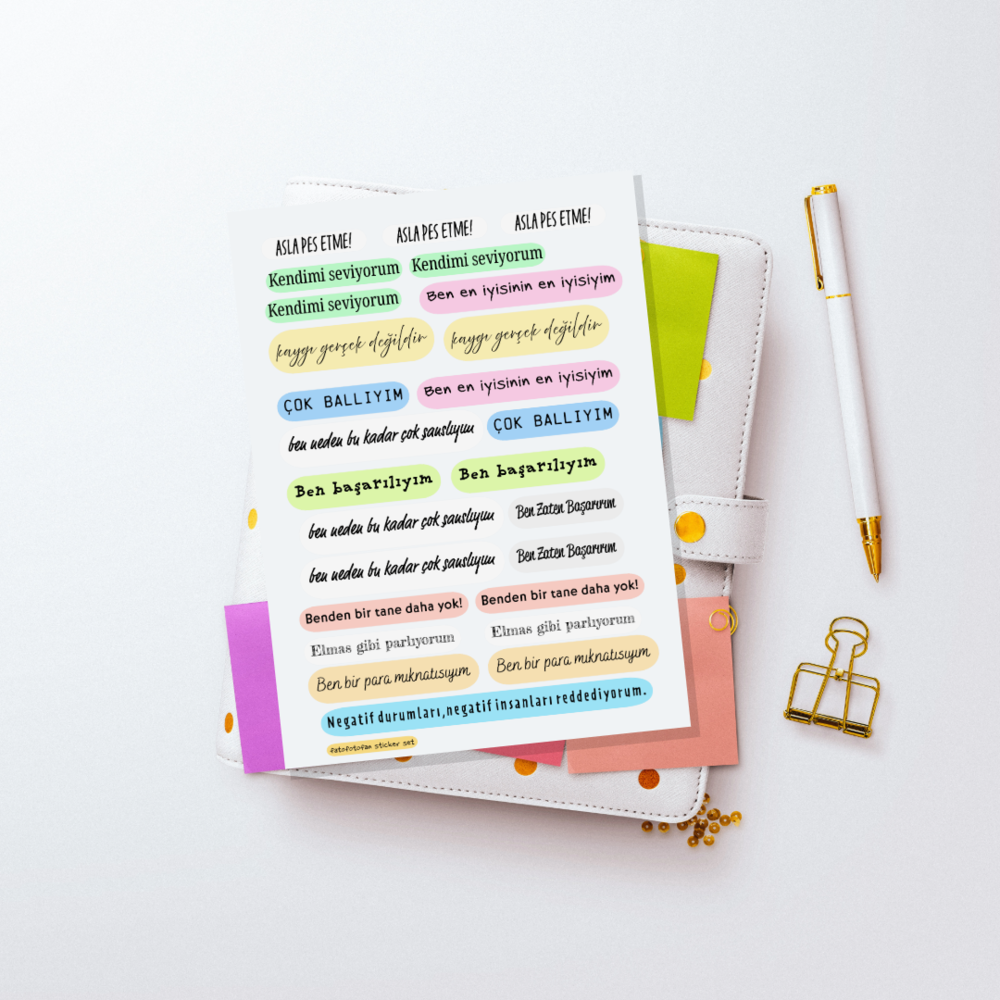 ASLA PES ETME! ASLA PES ETME! ASLA PES ETME!
Kendimi seviyorum Kendimi seviyorum
Kendimi seviyorum Ben en iyisinin en iyisiyim
kaygı gerçek değildir kaygı gerçek değildir
ÇOK BALLIYIM Ben en iyisinin en iyisiyim
ben neden bu kadar çok şanslıyım ÇOK BALLIYIM
Ben başarılıyım Ben başarılıyım
ben neden bu kadar çok şanslıyım Ben Zaten Başarırım
ben neden bu kadar çok şanslıyım Ben Zaten Başarırım
Benden bir tane daha yok! Benden bir tane daha yok!
Elmas gibi parlıyorum Elmas gibi parlıyorum
Ben bir para mıknatısıyım Ben bir para mıknatısıyım
Negatif durumları,negatif insanları reddediyorum.
fatofotofan sticker set